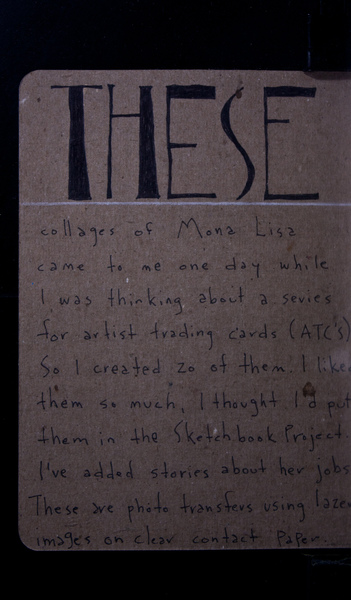 THESE
collages of Mona Lisa
came to me one day while
I was thinking about a series
for artist trading cards (ATC's)
So I created 20 of them. I like
them so much, I thought I'd put
them in the Sketchbook Project.
I've added stories about her jobs
These are photo transfers using laze
images on clear contact paper.